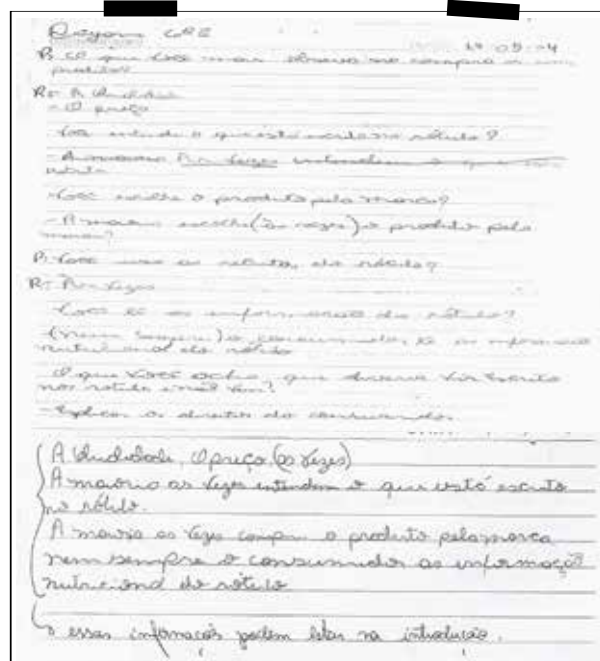 Dayane 6ª E 19-09-04
P: O que você mais observa na compra de um
produto?
R: A
- O preço
Você entende o que está escrito no rótulo?
- A maioria Às vezes entendem o que está
- Você escolhe o produto pela marca?
- A maioria escolhe (às vezes) o produto pela
marca?
P: Você usa as receitas do rótulo?
R: Às vezes
Você lê as informações do rótulo?
(nem sempre) o consumidor lê as informações
nutricional do rótulo
O que você acha que deveria vir escrito
nos rótulo e não vem?
- Explicar os direitos do consumidor.
A O preço (às vezes)
A maioria as vezes entendem o que está escrito
no rótulo.
A maioria as vezes compra o produto pela marca
nem sempre o consumidor as informação
nutricional do rótulo
essas informações podem estar na introdução.